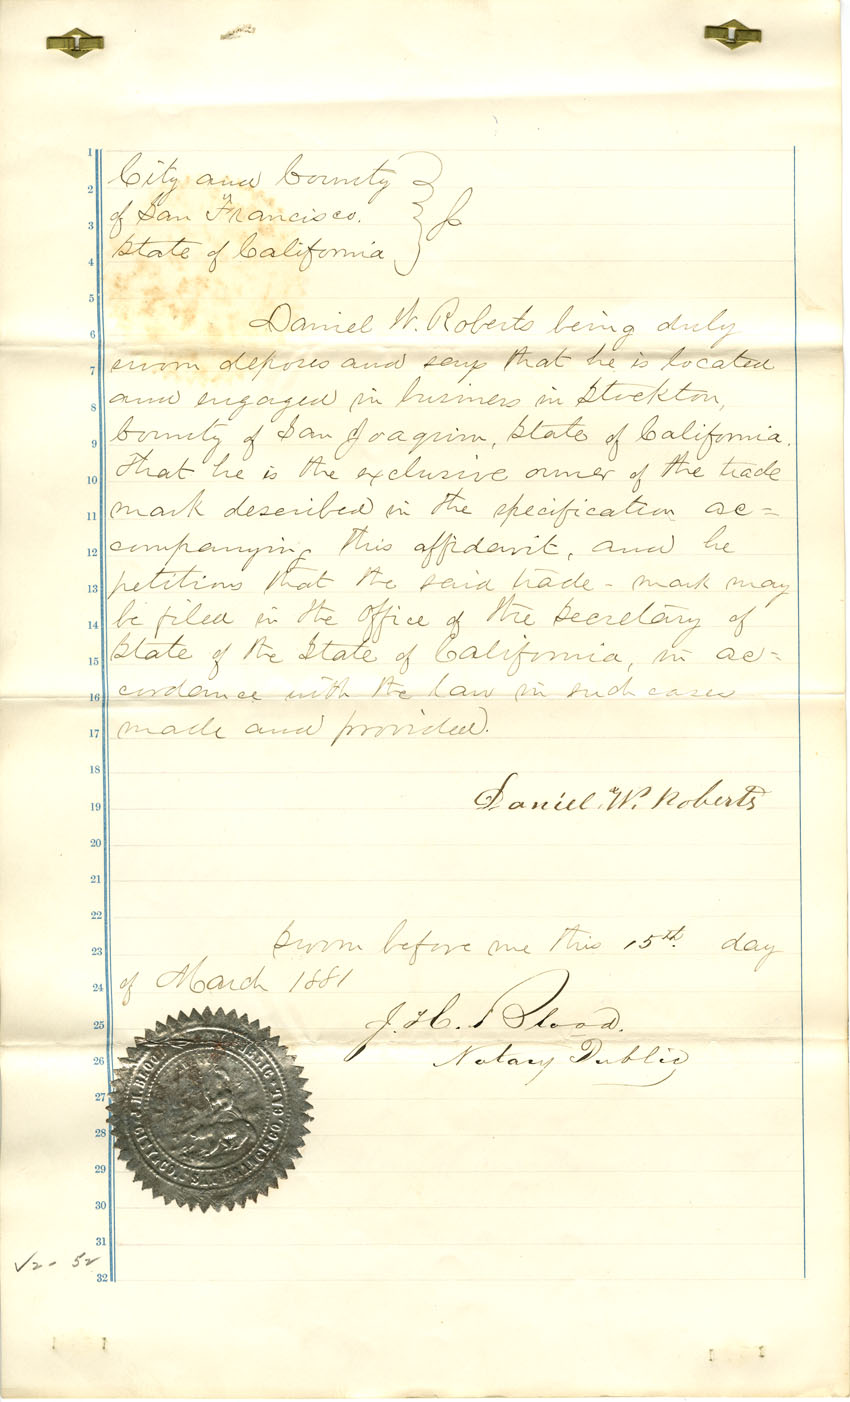 1
City and County
2
of San Francisco.
3
State of California } ss
4
5
Daniel W. Roberts being duly
6
sworn deposes and says that he is located
7
and engaged in business in Stockton,
8
County of San Joaquin, State of California.
9
That he is the exclusive owner of the trade
10
mark described in the specification ac=
11
companying this affidavit, and he
12
petitions that the said trade-mark may
13
be filed in the office of the Secretary of
14
State of the State of California, in ac=
15
cordance with the law in such cases
16
made and provided.
17
18
Daniel W. Roberts
19
20
21
22
Sworn before me this 15th. day
23
of March 1881
24
J. H. Blood.
25
Notary Public
26
27
28
29
30
31
32
J. H. BLOOD NOTARY PUBLIC
CITY & CO. SAN FRANCISCO, CAL.
√2 - 52